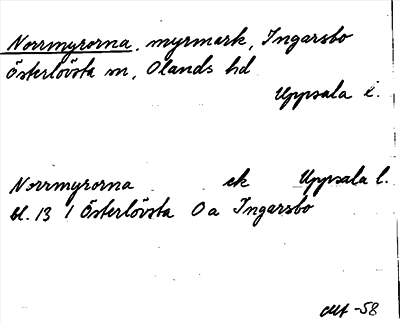 Norrmyrorna, myrmark, Ingarsbo
Österlövsta sn, Olands hd
Uppsala l.
Norrmyrorna ek Uppsala l.
bl. 13 I Österlövsta O a Ingarsbo
-58